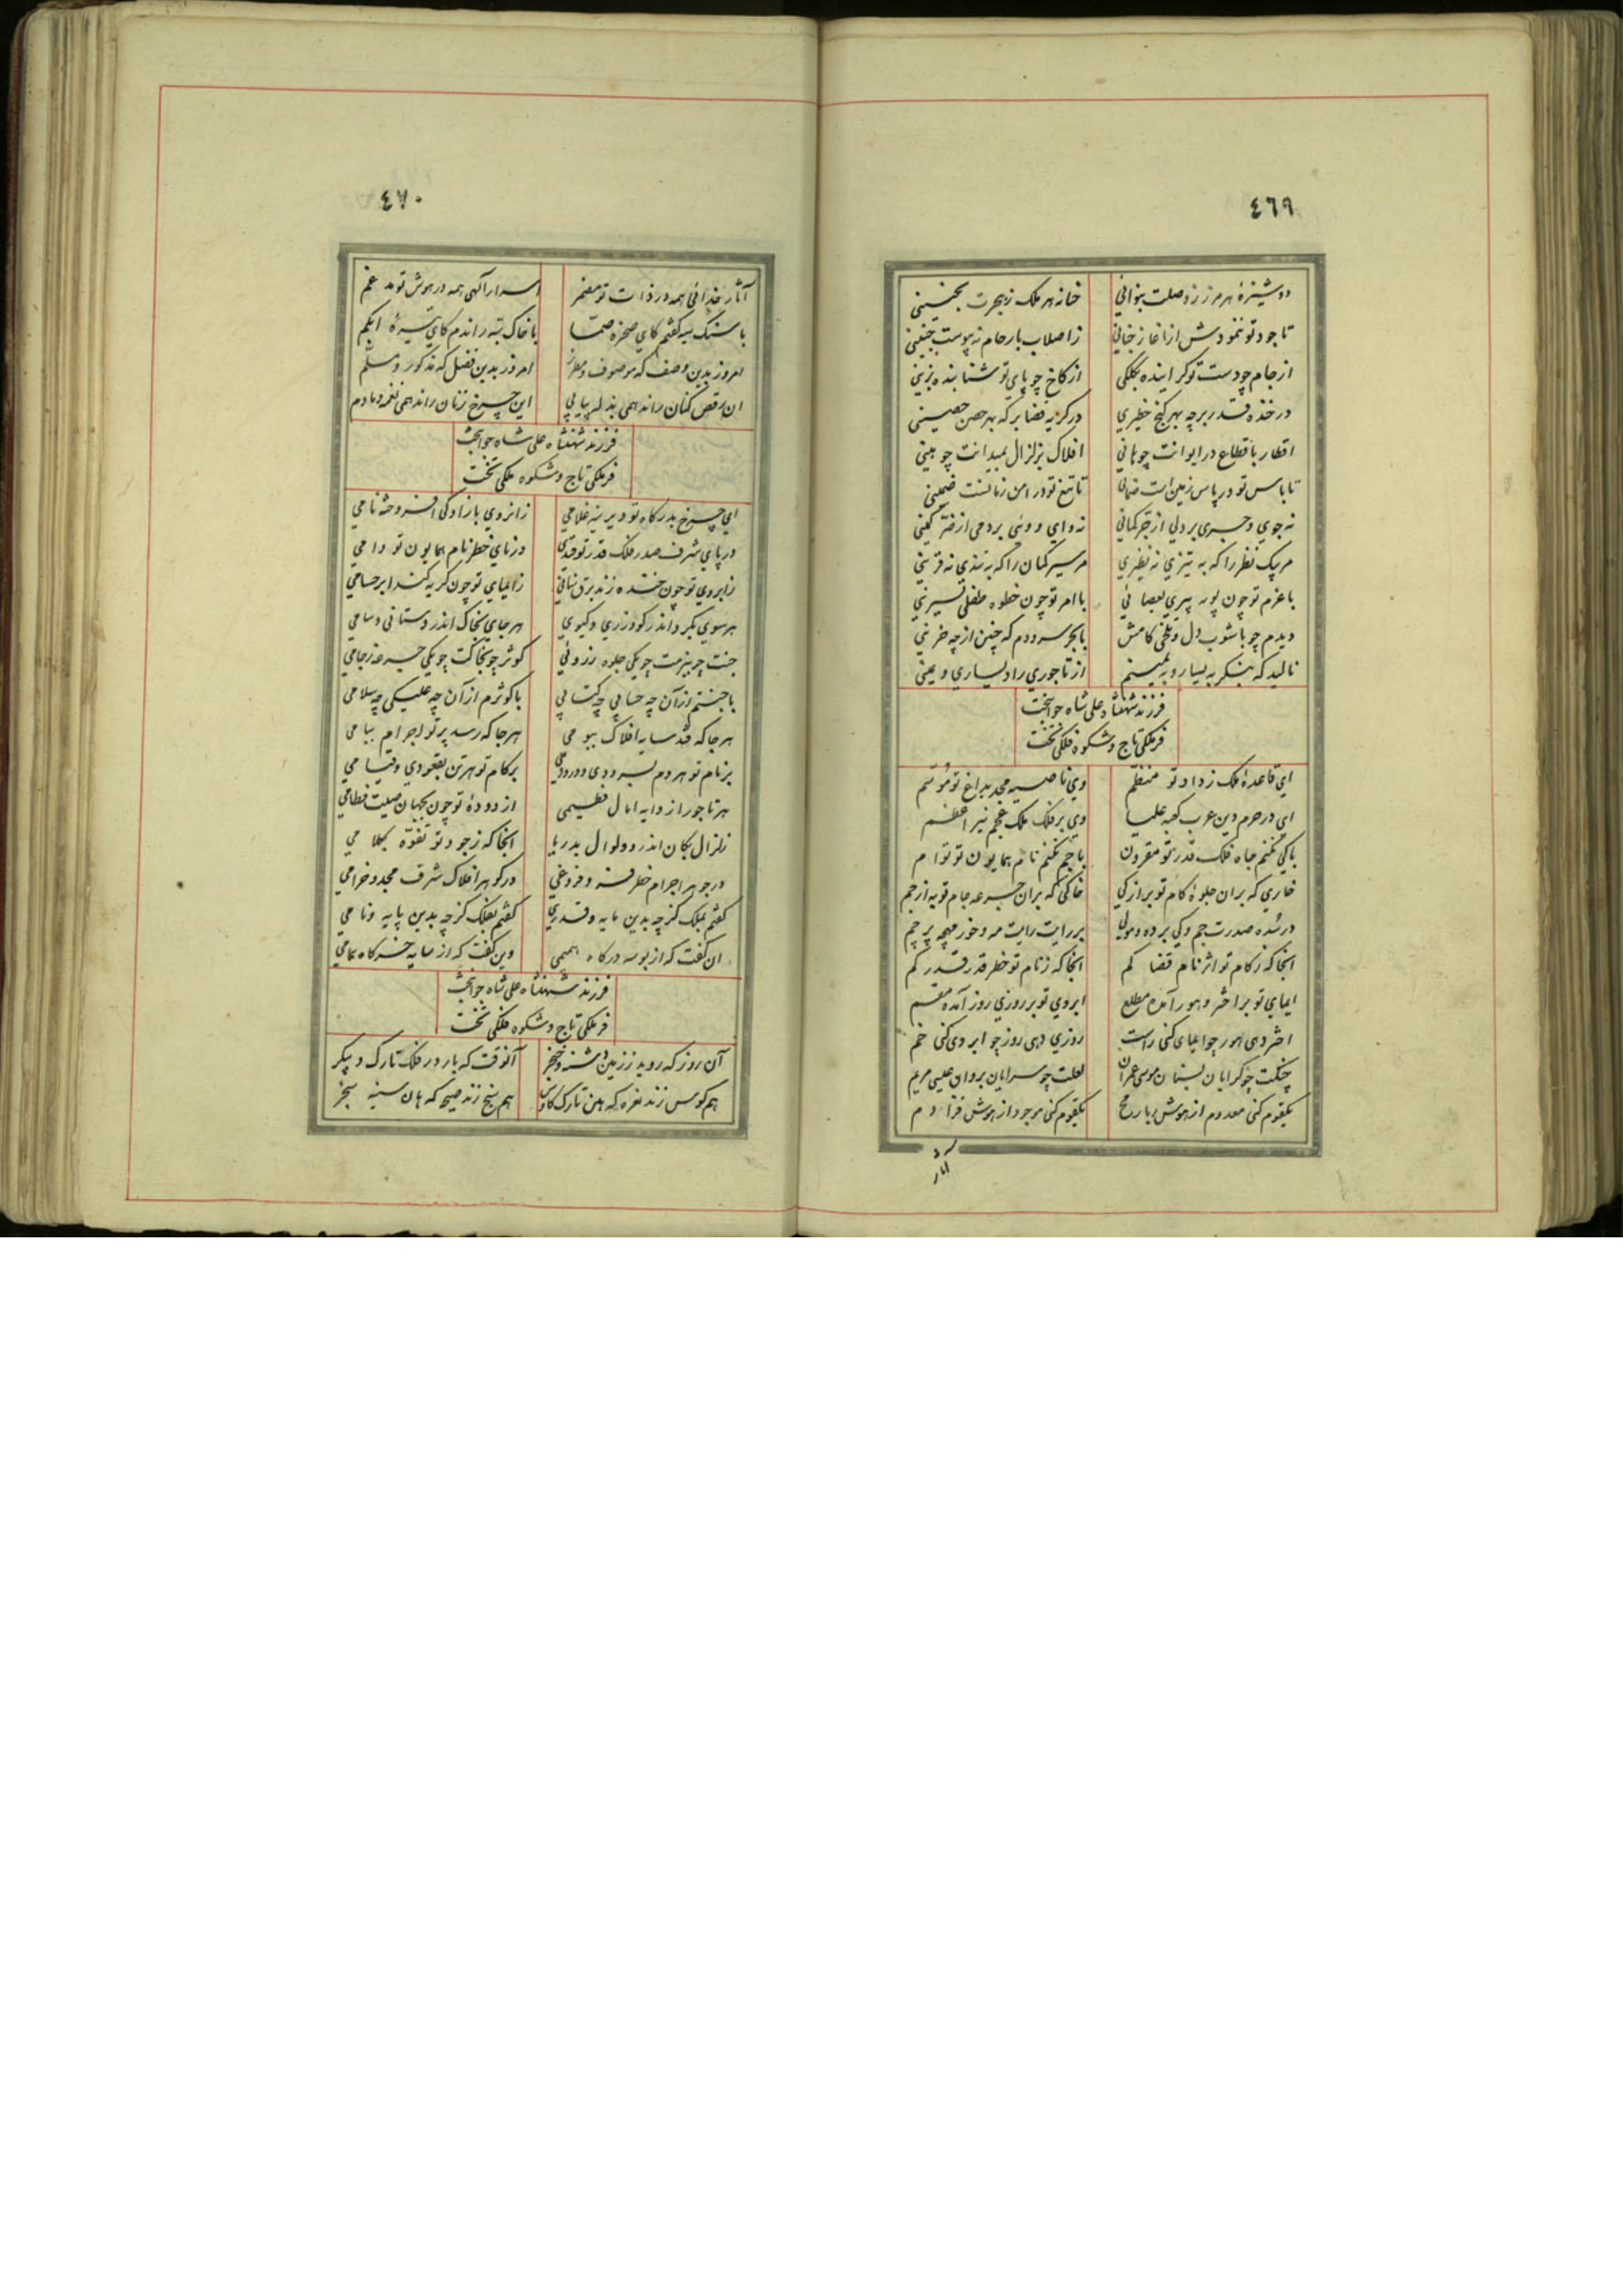 ٤٦٩
دوشیزهٔ هر مرز ز وصلت بنوائی
خانه هر ملک ز هجرت بحنینی
تا جود تو ننمودش از اغاز
ز اصلاب بارحام نه پیوست جنینی
از جام چو دست تو کراینده بکلکی
از کاخ چو پای تو شتابنده بزینی
در خنده قدر بر چه بهر کنج خطیری
در کریه قضا بر که بهر حصن حصینی
اقطار باقطاع در ایوانت چو
افلاک بزلزال بمیدانت چو
تا باس تو در پاس زمین است
تا تیغ تو در امن زمانست ضمینی
نه جوی و جسری بر دلی از کمانی
نه وای و ونی بر دمی از کمینی
مر پیک نظر را که به تیزی نه نظیری
مر سیر کمان را که به تندی نه قرینی
با عزم تو چون پویه پیری بعصائی
با امر تو چون خطوه طفلی
دیدم چو باشوب دل و تلخی کامش
با بحر سرودم که چنین از چه حزینی
نالید که بنکر به یسار و به یمینم
از تاجوری راد یساری و یمینی
فرزند شهنشاه علی شاه جوانبخت
فر ملکی تاج و شکوه فلکی تخت
ای قاعدهٔ ملک ز داد تو منظم
وی ناصیه مجد بداغ تو موسم
ای در حرم دین عرب کعبه علیا
وی بر فلک ملک عجم نیر اعظم
با کی نکنم جاه فلک قدر تو مقرون
با جم نکنم نام همایون تو توام
خاری که بران جلوهٔ کام تو بر از کی
خاکی که بران جرعه جام تو به از جم
در سُده صدرت جم و کی برده و مولی
بر رایت رایت مه و خور مهچه پرچم
انجا که ز کام تو اثر نام قضا کم
انجا که ز نام تو خطر قدر قدر کم
ایمای تو بر اختر و هور آمده مطلع
ابروی تو بر روزی روز آمده مقسم
اختر دهی هور چو ایمای کنی راست
روزی دهی روز چو ابروی کنی خم
چنکت چو کرایان بسنان موسی عمران
لعلت چو سرایان بروان عیسی مریم
یکقوم کنی معدوم از هوش ربا رمح
یکقوم کنی موجود از هوش فزا دم
آثار
٤٧٠
آثار خدائی همه در ذات تو مضمر
اسرار آلهی همه در هوش تو مدغم
با سنک سیه کفتم کای صخرهٔ صمّا
با خاک تیه راندم کای تیرهٔ ابکم
امروز بدین وصف که موصوف
امروز بدین فضل که مذکور و مسلّم
ان رقص کنان راند همی بذله پیاپی
این چرخ زنان راند همی نغمه دمادم
فرزند شهنشاه علی شاه جوانبخت
فر ملکی تاج و شکوه ملکی تخت
ای چرخ بدرکاه تو دیرینه غلامی
زانروی بازادکی افروخته نامی
در پای شرف صدر فلک قدر تو قدی
در نای خطر نام همایون تو دامی
ز ابروی تو چون خنده زند برق سنانی
ز ایمای تو چون کریه کند ابر حسامی
هر سوی بکرد اندر کودرزی و کیوی
هر جای بخاک اندر دستانی و سامی
جنت چو ببزمت چو یکی جلوه
کوثر چو بخاکت چو یکی جرعه ز جامی
با جنتم از آن چه حسابی چه کتابی
با کوثرم از آن چه علیکی چه سلامی
هر جا که فتد سایه افلاک ببومی
هر جا که رسد پرتو اجرام ببامی
بر نام تو هر دم بسرودی و درودی
بر کام تو هر تن بقعودی و قیامی
هر تاجور از دایه امال فطیمی
از دودهٔ تو چون بجهان فطامی
زلزال بکان اندر و ولوال بدریا
انجا که ز جود تو تفوّه بکلامی
در جوهر اجرام خطر فر و فروغی
در کوهر افلاک شرف مجد و خرامی
کفتم بملک کز چه بدین مایه و قدری
کفتم بفلک کز چه بدین پایه و نامی
ان کفت که از بوسه درکاه
وین کفت که از سایه خرکاه
فرزند شهنشاه علی شاه جوانبخت
فر ملکی تاج و شکوه فلکی تخت
آن روز که روید ز زمین دشنه و خنجر
آنوقت که بارد ز فلک تارک و پیکر
هم کوس زند نعره که هین تارک کاوس
هم سنج زند صیحه که هان سینه سنجر